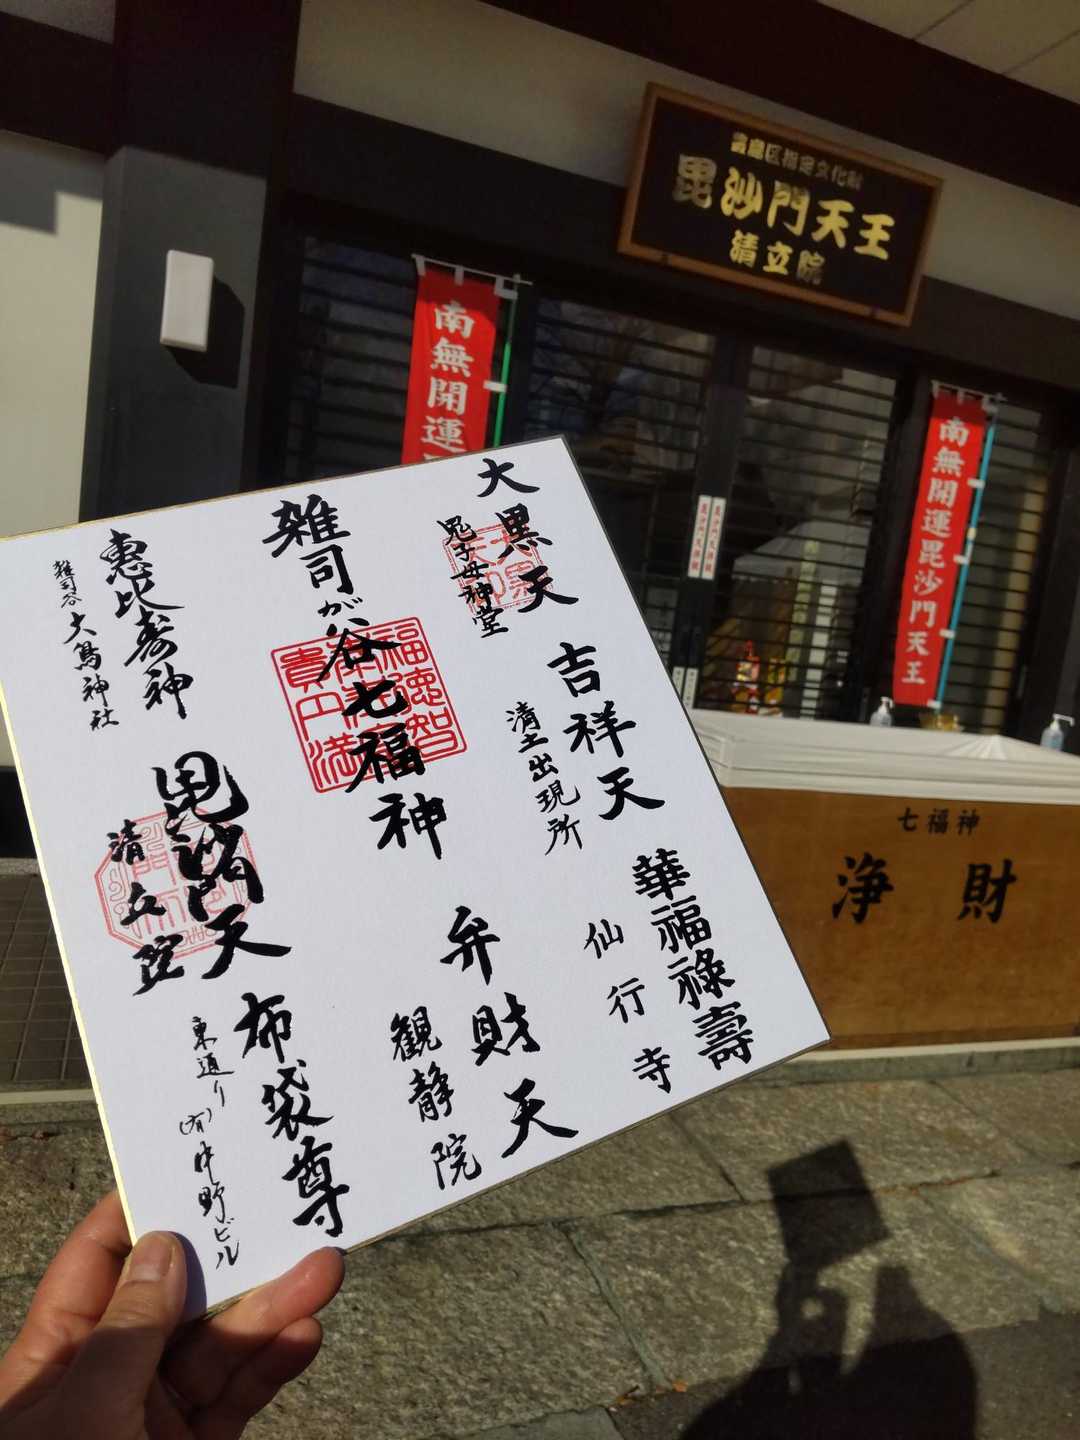 豊島区指定文化財
毘沙門天王
清立院
南無開運
南無開運毘沙門天王
七福神
浄財
大黒天
鬼子母神堂
吉祥天
清土出現所
華福祿壽
仙行寺
雑司が谷七福神
福徳智
貴円満
弁財天
観静院
惠比寿神
雑司谷
大鳥神社
毘沙門天
清立院
布袋尊
東通り
(有)中野ビル